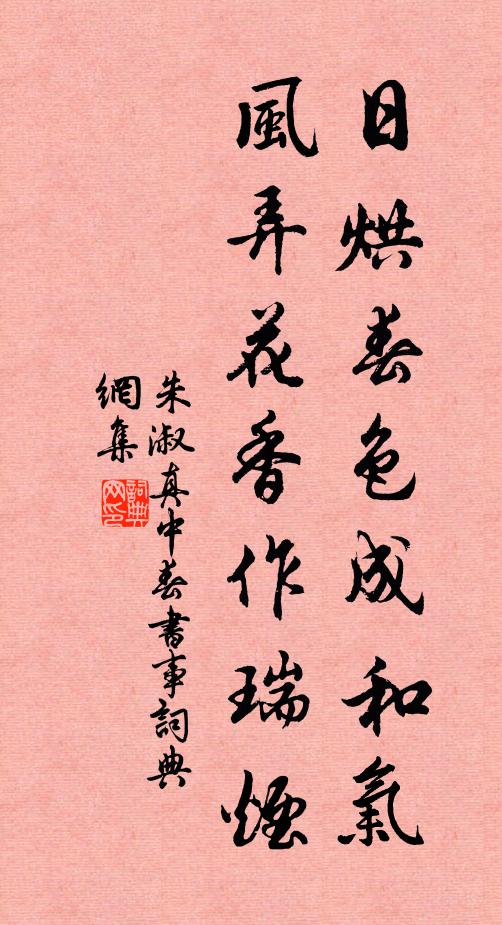 日烘春色成和氣
風弄花香作瑞煙
朱淑真中春書事詞典
網集
詞典
网